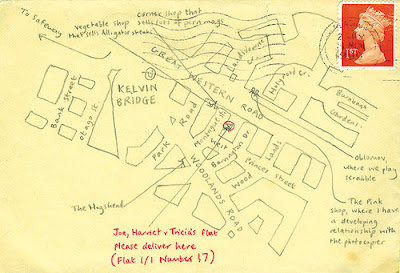 To Safeway
vegetable shop
that sells Alligator steaks
corner shop that
stills lots of porn mags
1ST
GREAT WESTERN ROAD
KELVIN
BRIDGE
Bank Street
Otago St.
Park
Road
Montague St.
West
Barrington Dr.
Lands.
Princes Street
Wood
WOODLANDS ROAD
Burnbank
Gardens.
Oblomov,
where we play
scrabble
The Pink
shop, where I have
a developing
relationship with
the photocopier
The Hugshead
Joe, Harriet & Tricia's flat
Please deliver here
(Flat 1/1 Number 17)